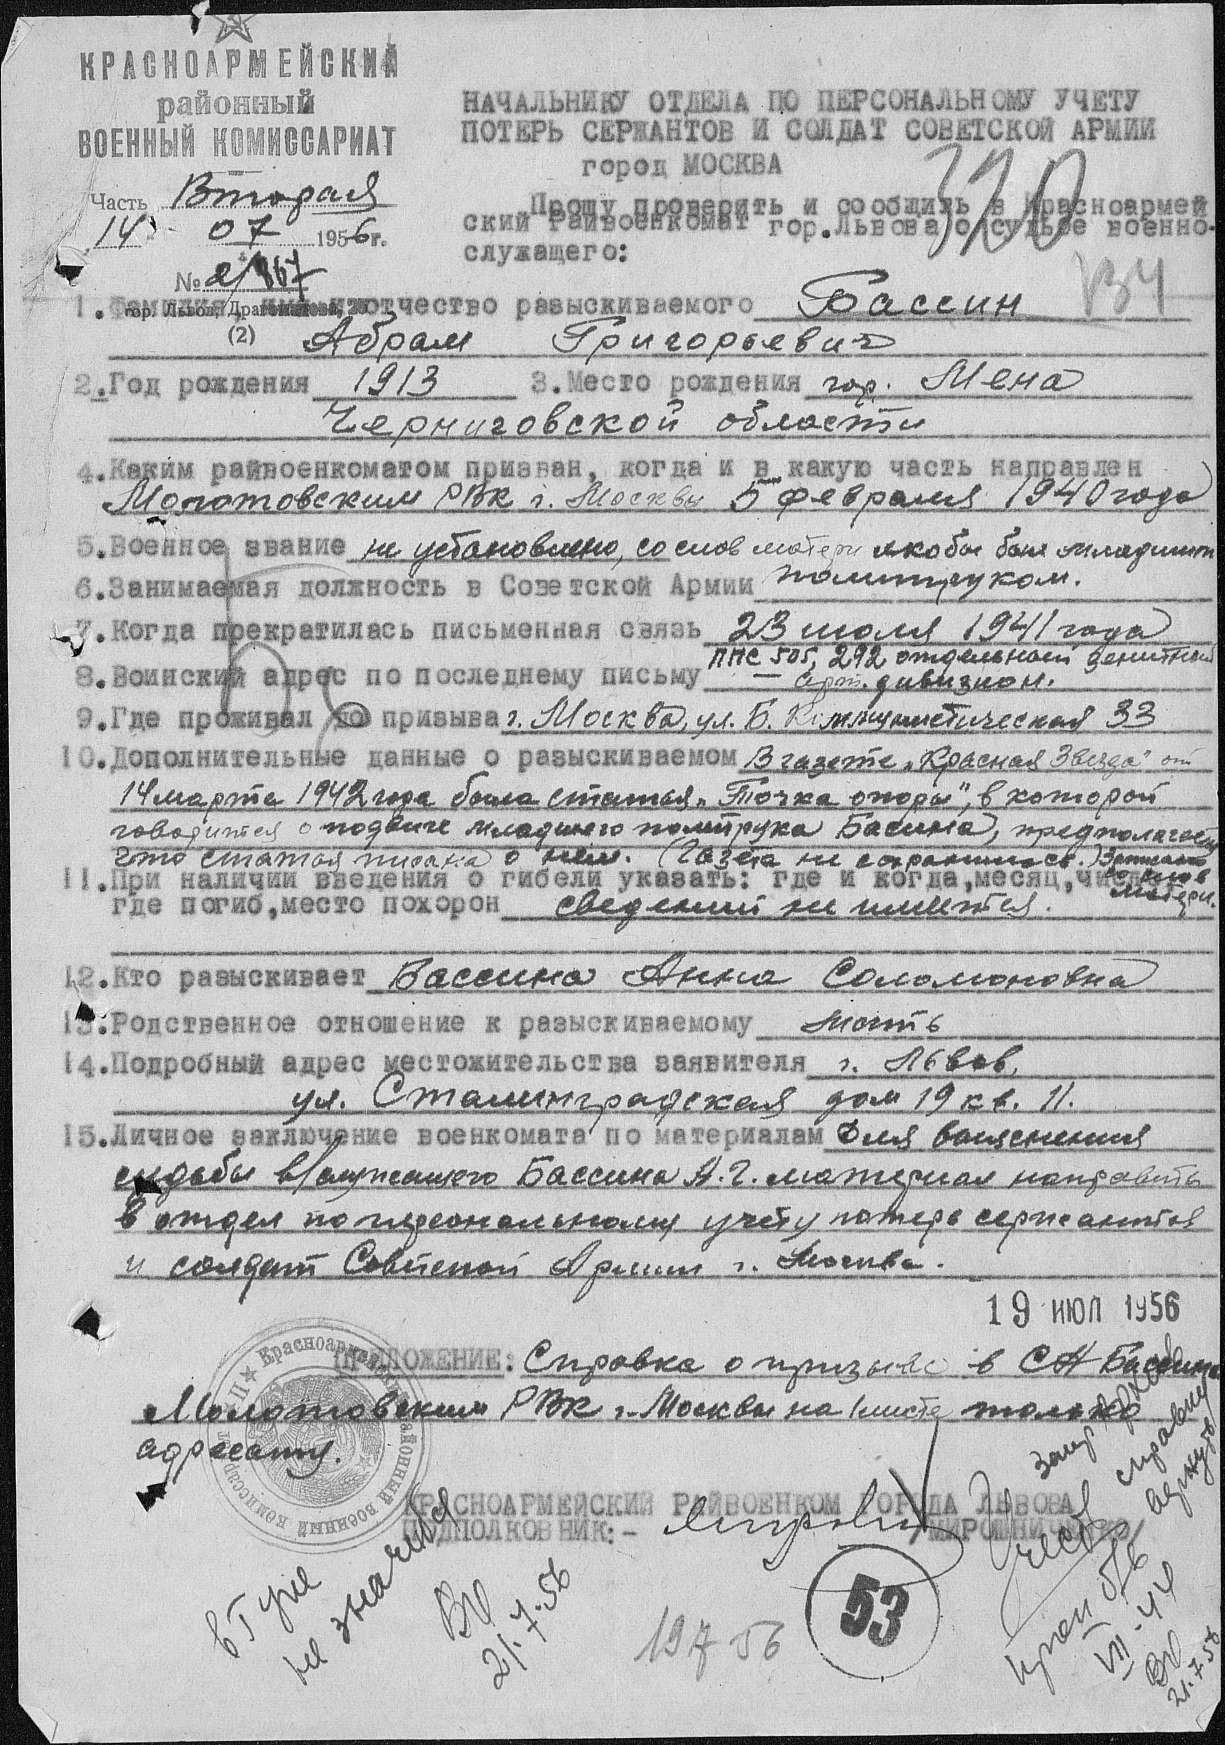 КРАСНОАРМЕЙСКИЙ
районный
ВОЕННЫЙ КОМИССАРИАТ
Часть Вторая
14 07 1956 г.
№ 2/867
гор. Львов, Драгоманова,
(2)
НАЧАЛЬНИКУ ОТДЕЛА ПО ПЕРСОНАЛЬНОМУ УЧЕТУ
ПОТЕРЬ СЕРЖАНТОВ И СОЛДАТ СОВЕТСКОЙ АРМИИ
город МОСКВА
320
Прошу проверить и сообщить в Красноармей
ский райвоенкомат гор.Львова о судьбе военно-
служащего:
ВЧ
1.Фамилия, имя и отчество разыскиваемого Бассин
Абрам Григорьевич
2.Год рождения 1913 3.Место рождения гор. Мена
Черниговской области
4.Каким райвоенкоматом призван, когда и в какую часть направлен
Молотовским РВК г. Москвы 5 февраля 1940 года
5.Военное звание не установлено, со слов матери якобы был младшим
6.Занимаемая должность в Советской Армии политруком.
7.Когда прекратилась письменная связь 23 июля 1941 года
8.Воинский адрес по последнему письму ППС 505, 292 отдельный зенитный
арт. дивизион.
9.Где проживал до призыва г. Москва, ул. Б. Коммунистическая 33
10.Дополнительные данные о разыскиваемом В газете „Красная Звезда" от
14 марта 1942 года была статья „Точка опоры", в которой
говорится о подвиге младшего политрука Басина, предполагает
что статья писана о нем. (Газета не сохранилась.) Записано
со слов
матери.
11.При наличии введения о гибели указать: где и когда,месяц,число,
где погиб,место похорон сведений не имеется.
12.Кто разыскивает Бассина Анна Соломоновна
13.Родственное отношение к разыскиваемому мать
14.Подробный адрес местожительства заявителя г. Львов,
ул. Сталинградская дом 19 кв. 11.
15.Личное заключение военкомата по материалам Для выяснения
судьбы в/служащего Бассина А.Г. материал направить
в отдел по персональному учету потерь сержантов
и солдат Советской Армии г. Москва.
19 ИЮЛ 1956
ПРИЛОЖЕНИЕ: Справка о призыве в СА Бассина
Молотовским РВК г. Москвы на 1 листе только
адресату.
КРАСНОАРМЕЙСКИЙ РАЙВОЕНКОМ ГОРОДА ЛЬВОВА
ПОДПОЛКОВНИК:- /МИРОШНИЧЕНКО/
не значится
21.7.56
19 7 56
53
справку
VII-44
21.7.56